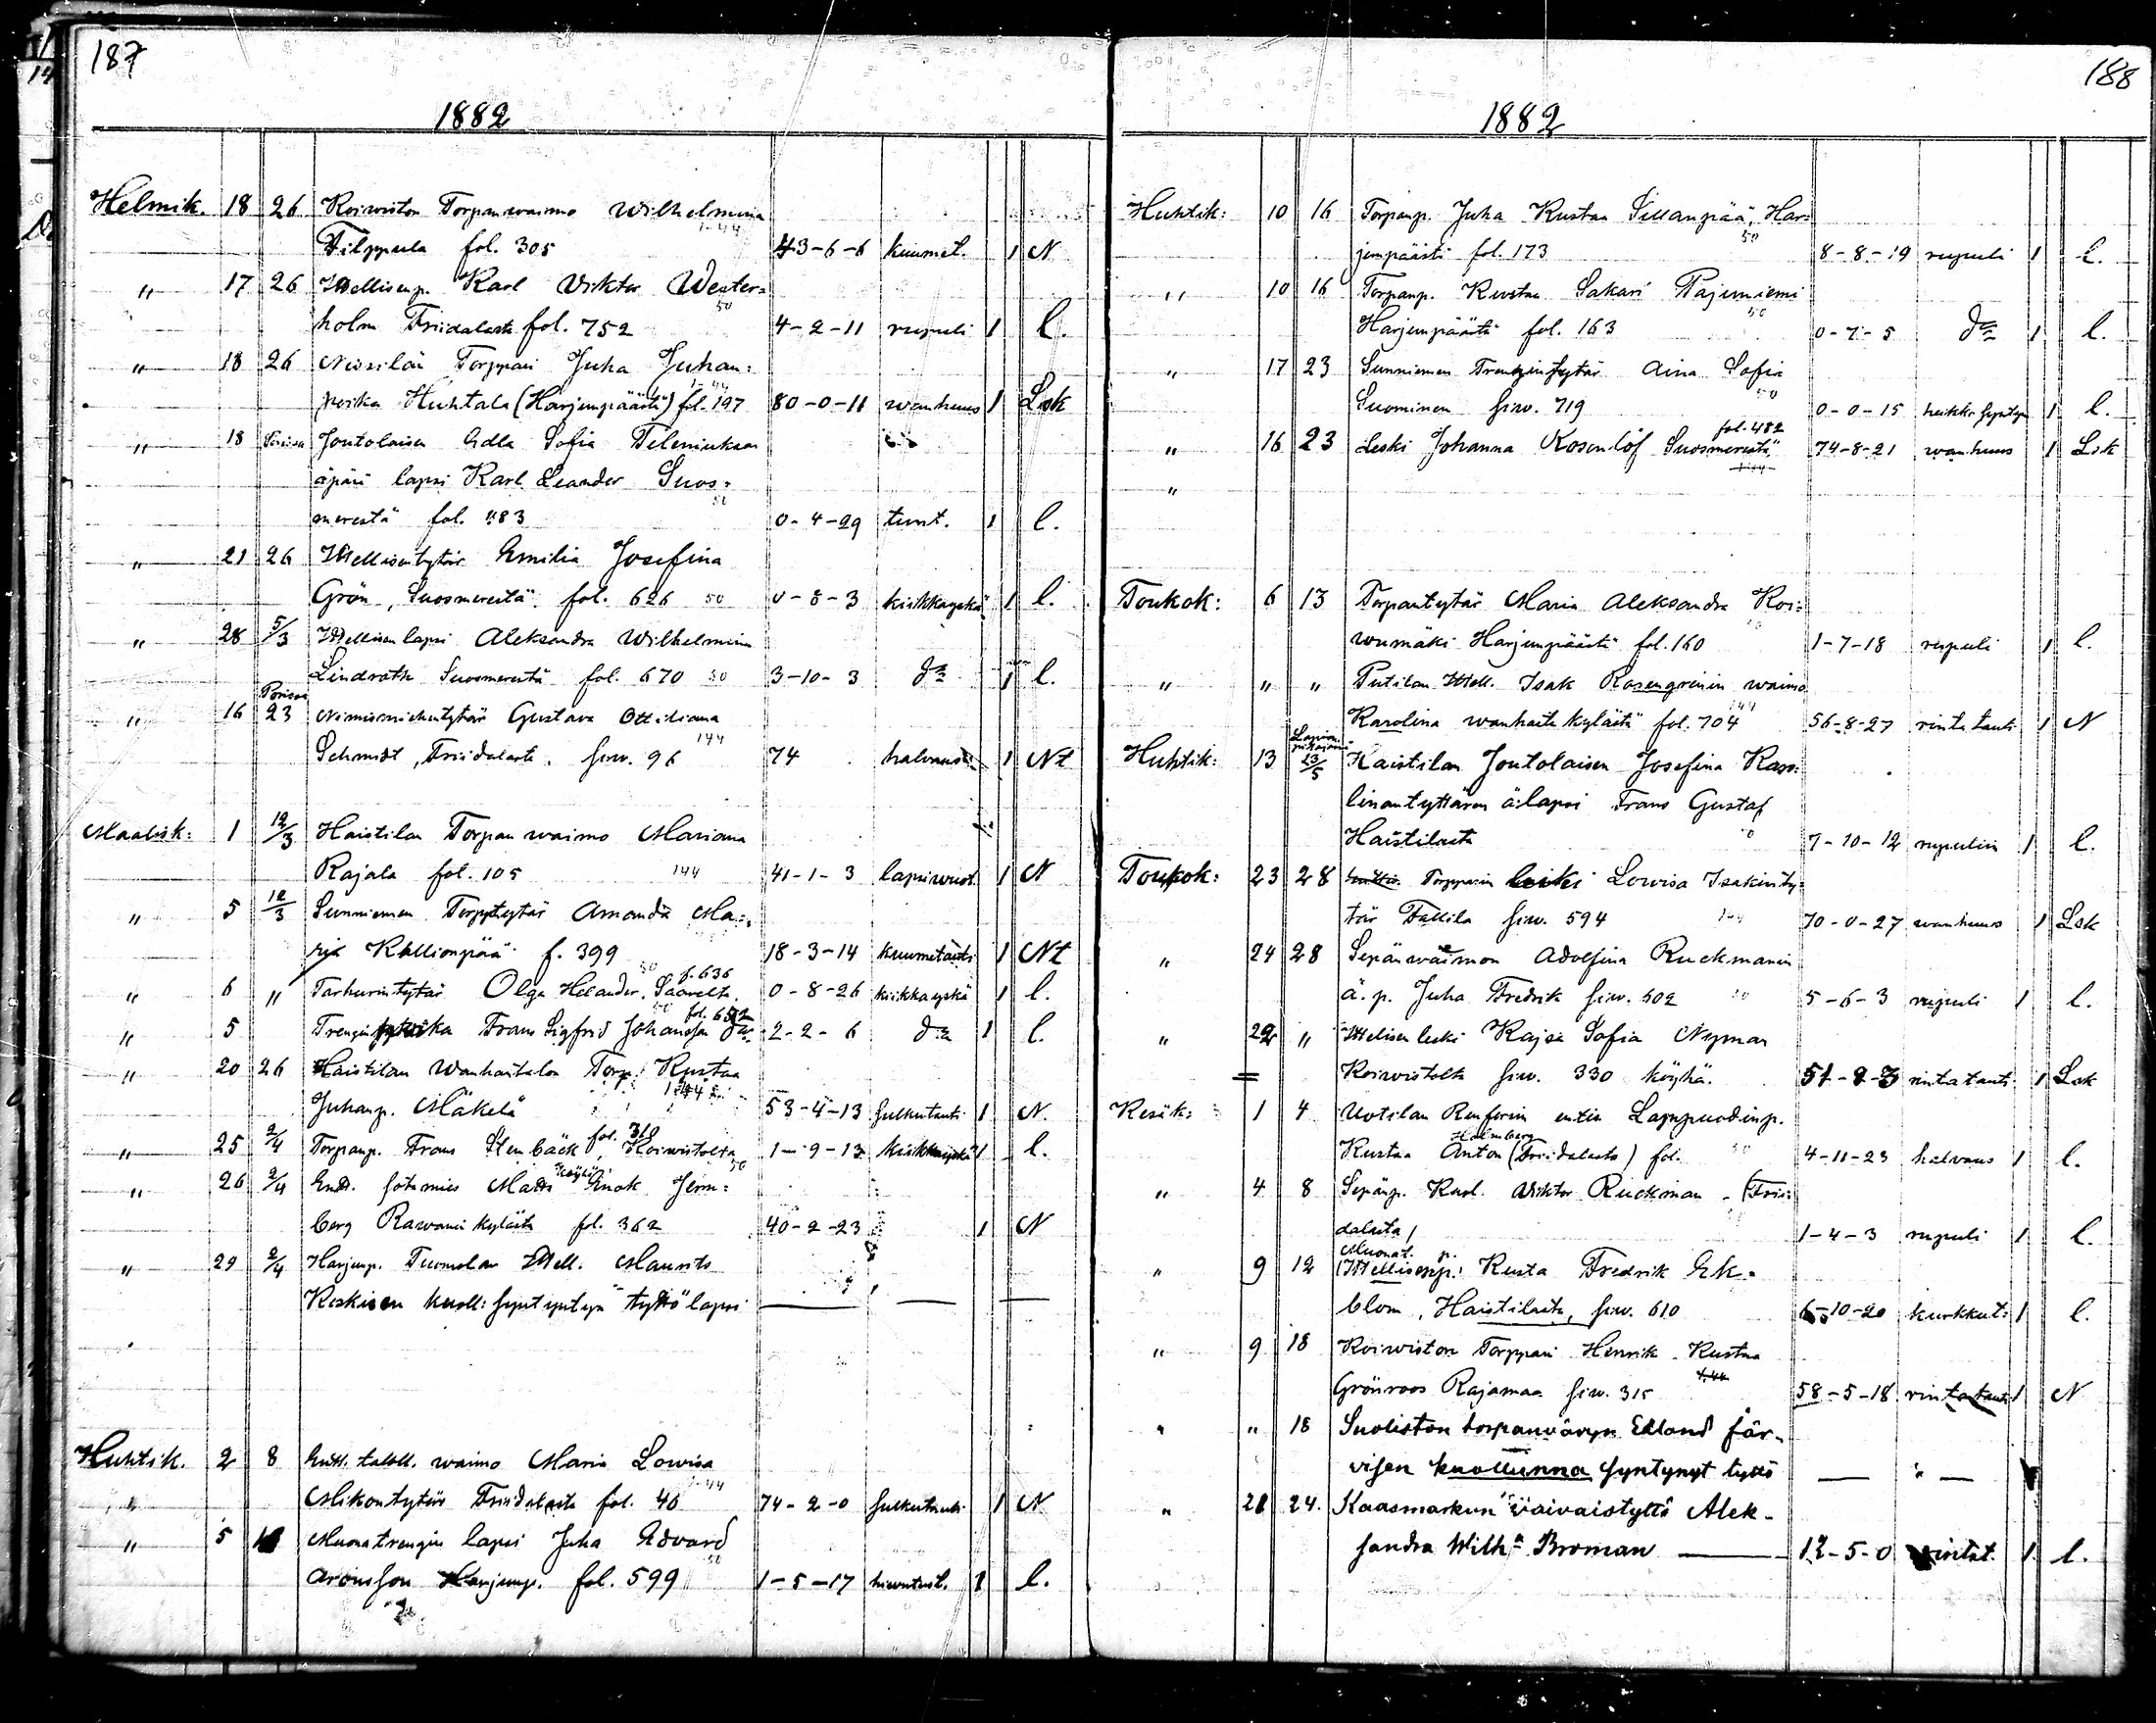 187
1882
Helmik. 18 26 Koiwiston Torpanwaimo Wilhelmina
Filppula fol. 305 43-6-6 kuumet. 1 N
" 17 26 Ittellisenp. Karl Viktor Wester=
holm Friidalasta fol. 752 50 4-2-11 rupuli 1 l.
" 18 26 Torppari Juha Juhan=
poika Huhtala (Harjunpäästä) fol. 197 80-0-11 wanhuus 1 Lsk
" 18 Joutolaisen Adla Sofia
äpärä lapsi Karl Leander Suos=
merestä fol. 50 0-4-29 tunt. 1 l.
" 21 26 Ittellisentytär Emilia Josefina
Grön, Suosmerestä fol. 626 50 0-8-3 kiikkayskä 1 l.
" 28 5/3 Ittellisen lapsi Aleksandra Wilhelmina
Lindroth Suosmerestä fol. 670 50 3-10-3 d:o 1 l.
Porissa
" 16 23 Nimismiehentytär Gustava Ottiliana
Schmidt, Friidalasta. siw. 96 144 74 halvaus 1 Nt
Maalisk: 1 12/3 Haistilan Torpan waimo Mariana
Rajala fol. 105 144 41-1-3 lapsiwuot. 1 N
" 5 12/3 Sunniemen Torp.tytär Amanda Ma=
ria Kallionpää f. 399 18-3-14 kuumetauti 1 Nt
50 f. 636
" 6 " Tarhurintytär Olga Helander, Saarelta. 0-8-26 kiikkayskä 1 l.
50 fol. 652
" 5 Trengin poika Frans Sigfrid Johansson d:o 2-2-6 d:o 1 l.
" 20 26 Haistilan Wanhantalon Torp. Kustaa
Juhanp. Mäkelä 144 53-4-13 sulkutauti 1 N.
fol. 310
" 25 2/4 Torpanp. Frans Stenbäck, Koiwistolta 50 1-9-13 kiikkayskä 1 l.
" 26 2/4 Entt. sotamies Matts Enok Jern=
berg Rawani kylästä fol. 362 40-2-23 1 N
" 29 2/4 Harjunp. Tuomolan Ittell. Maurits
Koskisen kuoll: syntynyt tyttölapsi — — —
Huhtik. 2 8 Entt. taloll. waimo Maria Lowisa
Mikontytär Friidalasta fol. 40 144 74-2-0 sulkutauti 1 N
" 5 Muonatrengin lapsi Juha Edvard
Aronsson Harjunp. fol. 599 50 1-5-17 1 l.
188
1882
Huhtik: 10 16 Torpanp. Juha Kustaa Sillanpää, Har=
junpäästä fol. 173 50 8-8-19 rupuli 1 l.
" 10 16 Torpanp. Kustaa Sakari Pajuniemi
Harjunpäästä fol. 163 50 0-7-5 d:o 1 l.
" 17 23 Sunniemen Trengintytär Aina Sofia
Suominen siw. 719 50 0-0-15 1 l.
fol. 482
" 16 23 Leski Johanna Rosenlöf Suosmerestä 74-8-21 wanhuus 1 Lsk
144
"
Toukok: 6 13 Torpantytär Maria Aleksandra Koi=
wumäki Harjunpäästä fol. 160 1-7-18 rupuli 1 l.
" " " Putilan Ittell. Isak Rosengrenin waimo
Karolina wanhasta kylästä fol. 704 144 56-8-27 rinta tauti 1 N
Huhtik: 13 23/5 Haistilan Joutolaisen Josefina Karo=
linantyttären ä.lapsi Frans Gustaf
Haistilasta 7-10-12 rupuliin 1 l.
Toukok: 23 28 Torpparin leski Lowisa Isakinty=
tär Tallila siw. 594 144 70-0-27 wanhuus 1 Lsk
" 24 28 Sepänwaimon Adolfina Ruckmanin
ä. p. Juha Fredrik siw. 502 50 5-6-3 rupuli 1 l.
" 22 " Ittelisen leski Kajsa Sofia Nyman
Koiwistolta siw. 330 köyhä. rintatauti 1 Lsk
Kesäk: 1 4 Uotilan Renforin entin Lapnpuodinp.
Holmberg
Kustaa Anton (Friidalasta) fol. 50 4-11-23 halvaus 1 l.
" 4 8 Sepänp. Karl Wiktor Ruckman (Frii=
dalasta) 1-4-3 rupuli 1 l.
Muonat. p.
" 9 12 (Ittellisenp.) Kusta Fredrik Ek=
blom, Haistilasta, siw. 610 6-10-20 kurkkut: 1 l.
" 9 18 Koiwiston Torppari Henrik Kustaa
Grönroos Rajamaa siw. 315 144 58-5-18 rintatauti 1 N
" " 18 Suoliston torpanvävyn Edland Jär=
visen kuollunna syntynyt tyttö — " —
" 21 24. Kaasmarkun vaivaistyttö Alek=
sandra Wilh:a Broman — 12-5-0 rintat. 1 l.